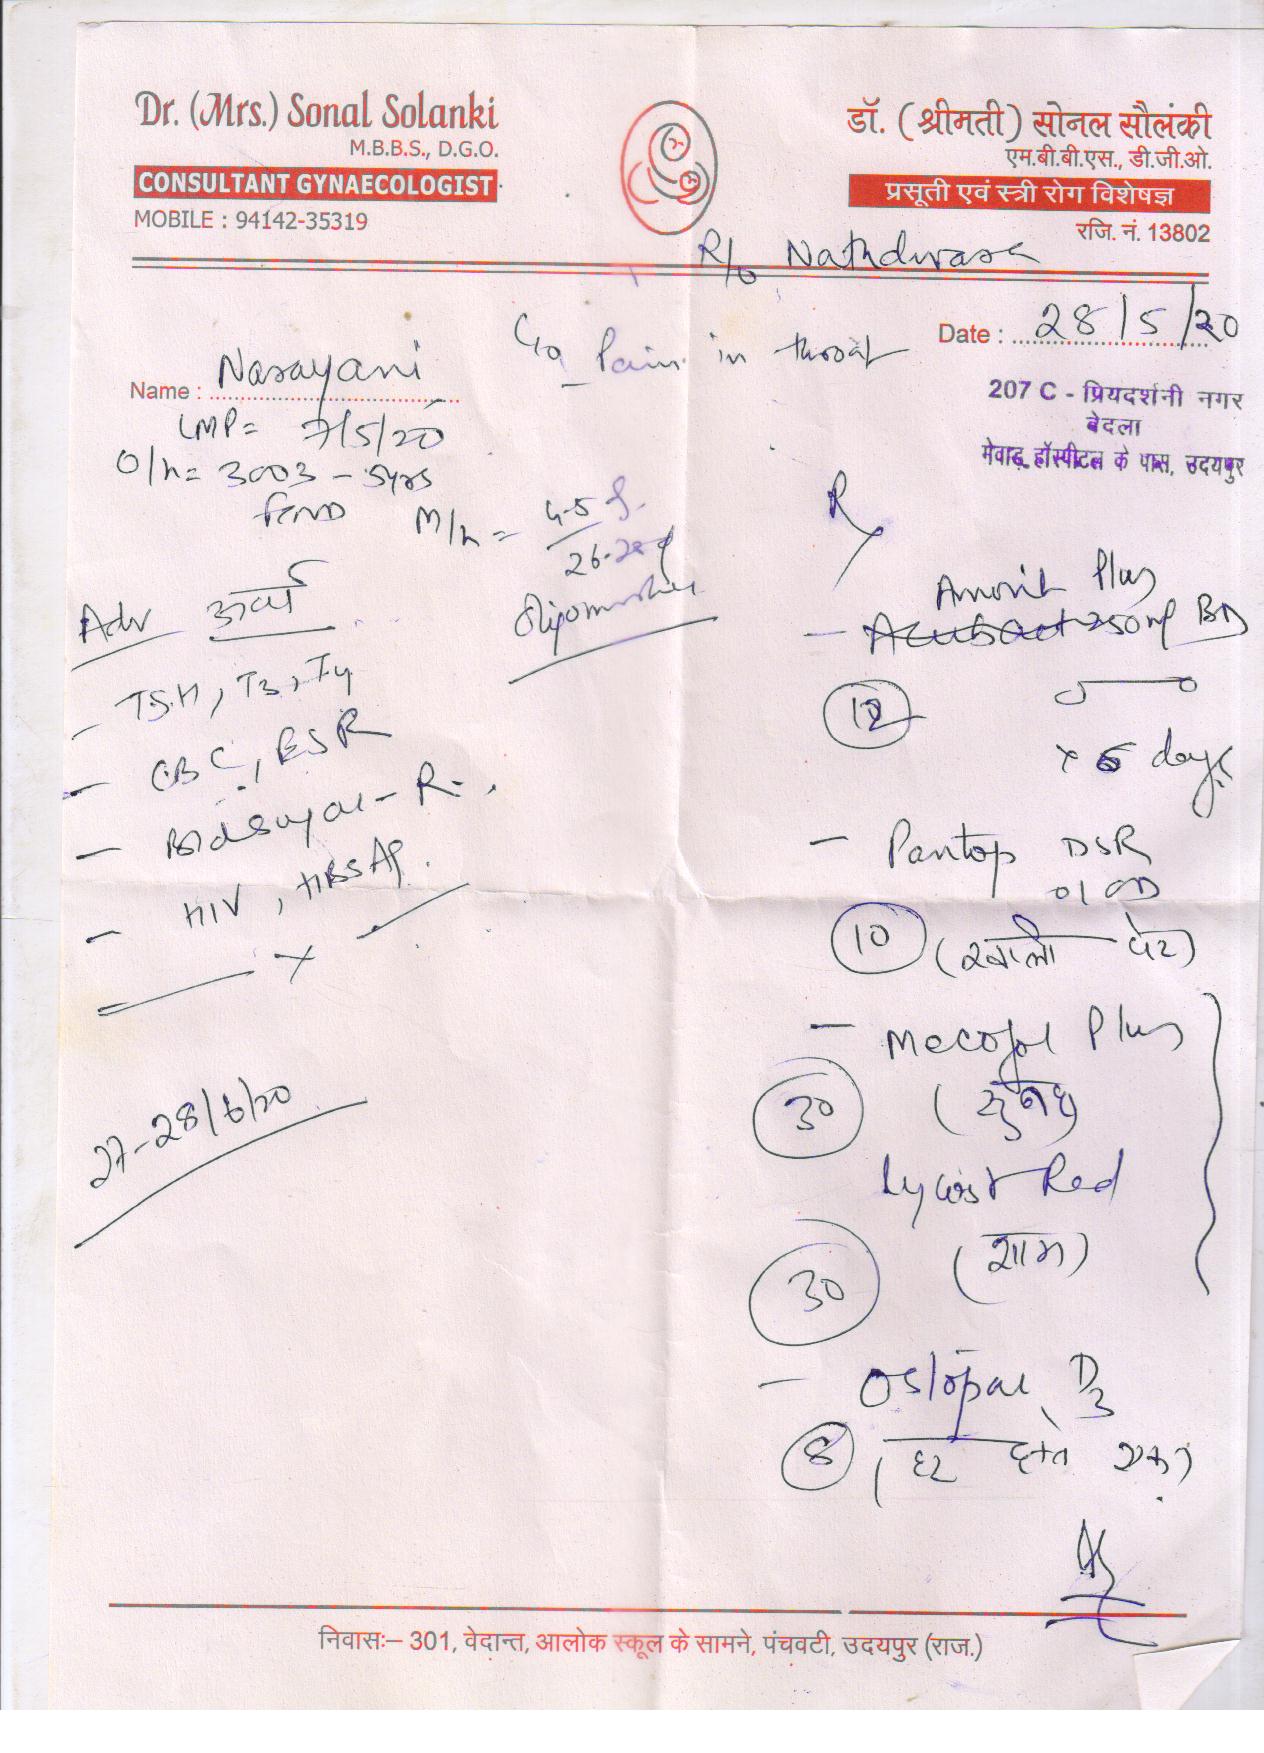 Dr. (Mrs.) Sonal Solanki
M.B.B.S., D.G.O.
CONSULTANT GYNAECOLOGIST
MOBILE : 94142-35319
डॉ. (श्रीमती) सोनल सौलंकी
एम.बी.बी.एस., डी.जी.ओ.
प्रसूती एवं स्त्री रोग विशेषज्ञ
रजि. नं. 13802
R/o Nathdwara
Date : 28/5/20
207 C - प्रियदर्शनी नगर
बेदला
मेवाड़ हॉस्पीटल के पास, उदयपुर
C/o Pain in throat
Name : Narayani
LMP = 7/5/20
O/h = 3003 - 5yrs
FTND
M/h = 4-5
26-28
Adv
- TSH, T3, T4
- CBC, ESR
- Bld sugar - R.
- HIV, HBSAg.
27-28/6/20
R
Plus
- 250 mg BD
12
x 5 days
- Pantop DSR
01 OD
10 (खाली पेट)
- Mecofol Plus
30 (सुबह)
Lycost Red
30 (शाम)
- Ostopan D3
8 (हर हफ्ते एक)
निवासः– 301, वेदान्त, आलोक स्कूल के सामने, पंचवटी, उदयपुर (राज.)